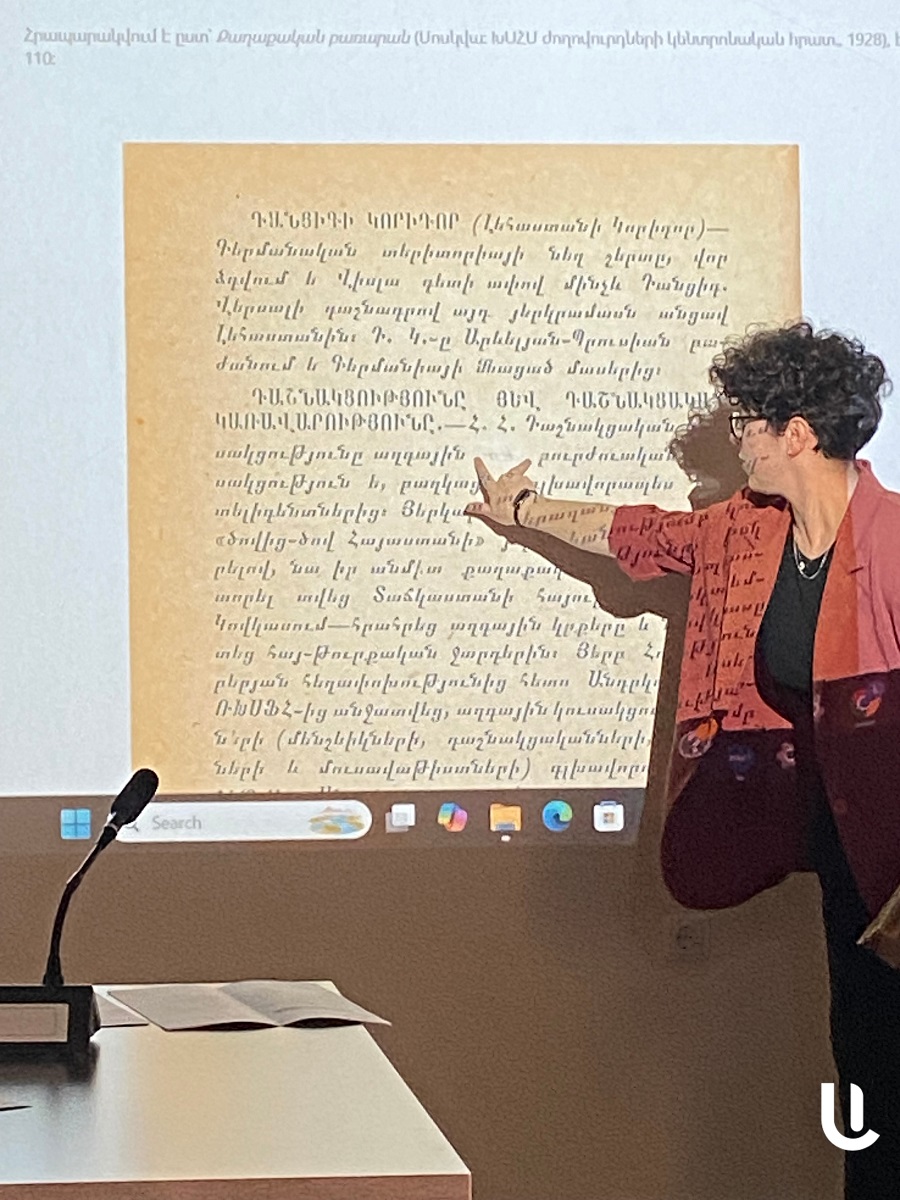 Հրապարակվում է ըստ՝ Քաղաքական բառարան (Մոսկվա: ԽՍՀՄ ժողովուրդների կենտրոնական հրատ., 1928), է
110:
ԴԱՆՑԻԳԻ ԿՈՐԻԴՈՐ (Լեհաստանի Կորիդոր)—
Գերմանական տերիտորիայի նեղ շերտը, վոր
ձգվում է Վիսլա գետի ափով մինչև Դանցիգ.
Վերսալի դաշնագրով այդ յերկրամասն անցավ
Լեհաստանին։ Դ. Կ.-ը Արևելյան-Պրուսիան բա-
ժանում է Գերմանիայի մնացած մասերից։
ԴԱՇՆԱԿՑՈՒԹՅՈՒՆԸ ՅԵՎ ԴԱՇՆԱԿՑԱԿԱ
ԿԱՌԱՎԱՐՈՒԹՅՈՒՆԸ.—Հ. Հ. Դաշնակցական
սակցությունը ազգային բուրժուական
սակցություն է, բաղկաց գլխավորապես
տելիգենտներից։ Յերկար
«ծովից-ծով Հայաստանի»
րելով, նա իր անմիտ քաղաքակ
տորել տվեց Տաճկաստանի հայու
Կովկասում—հրահրեց ազգային կրքերը և
տեց հայ-թուրքական ջարդերին։ Յերբ Հո
բերյան հեղափոխությունից հետո Անդրկ
ՌԽՍՖՀ-ից անջատվեց, ազգային կուսակցու
ների (մենշևիկների, դաշնակցականների,
ների և մուսավաթիստների) գլխավորո
Search